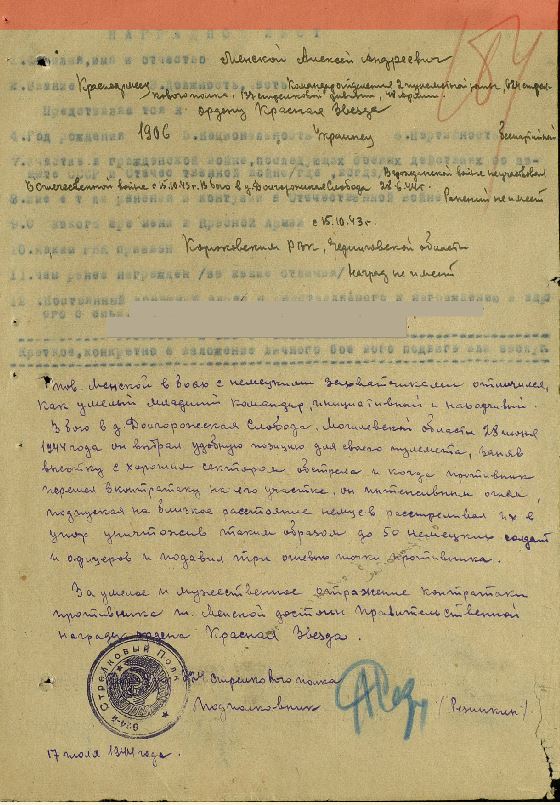 НАГРАДНОЙ ЛИСТ
1. Фамилия, имя и отчество Менской Алексей Андреевич
2. Звание Красноармеец Должность, Командир отделения 2 пулеметной роты, 624 стрел-
кового полка, стрелковой дивизии, армии.
Представляется к ордену Красная Звезда
4. Год рождения 1906 5. Национальность Украинец 6. Партийность Беспартийный
7. Участие в гражданской войне, последующих боевых действиях по за-
щите СССР и Отечественной войне /где, когда/ В гражданской войне не участвовал
В отечественной войне с 15.10.43 г. В бою в д. Долгорожская Слобода 28.6.44 г.
8. Имеет ли ранения и контузии в Отечественной войне Ранений не имеет
9. С какого времени в Красной Армии с 15.10.43 г.
10. Каким РВК призван Корюковским РВК, Черниговской области
11. Чем ранее награжден /за какие отличия/ наград не имеет
12. Постоянный домашний адрес представляемого к награждению и адрес
его семьи
Краткое, конкретное изложение личного боевого подвига или заслуг
тов. Менской в боях с немецкими захватчиками отличился,
как умелый младший командир, инициативной и находчивый.
В бою в д. Долгорожская Слобода, Могилевской области 28 июня
1944 года он выбрал удобную позицию для своего пулемета, заняв
высотку с хорошим сектором обстрела и когда противник
перешел в контратаку на его участке, он интенсивным огнем,
подпуская на близкое расстояние немцев расстреливал их в
упор уничтожив таким образом до 50 немецких солдат
и офицеров и подавил три огневые точки противника.
За умелое и мужественное отражение контратаки
противника т. Менской достоин Правительственной
награды ордена Красная Звезда.
624 стрелкового полка
Подполковник (Резинкин)
624-й Стрелковый Полк
17 июля 1944 года.